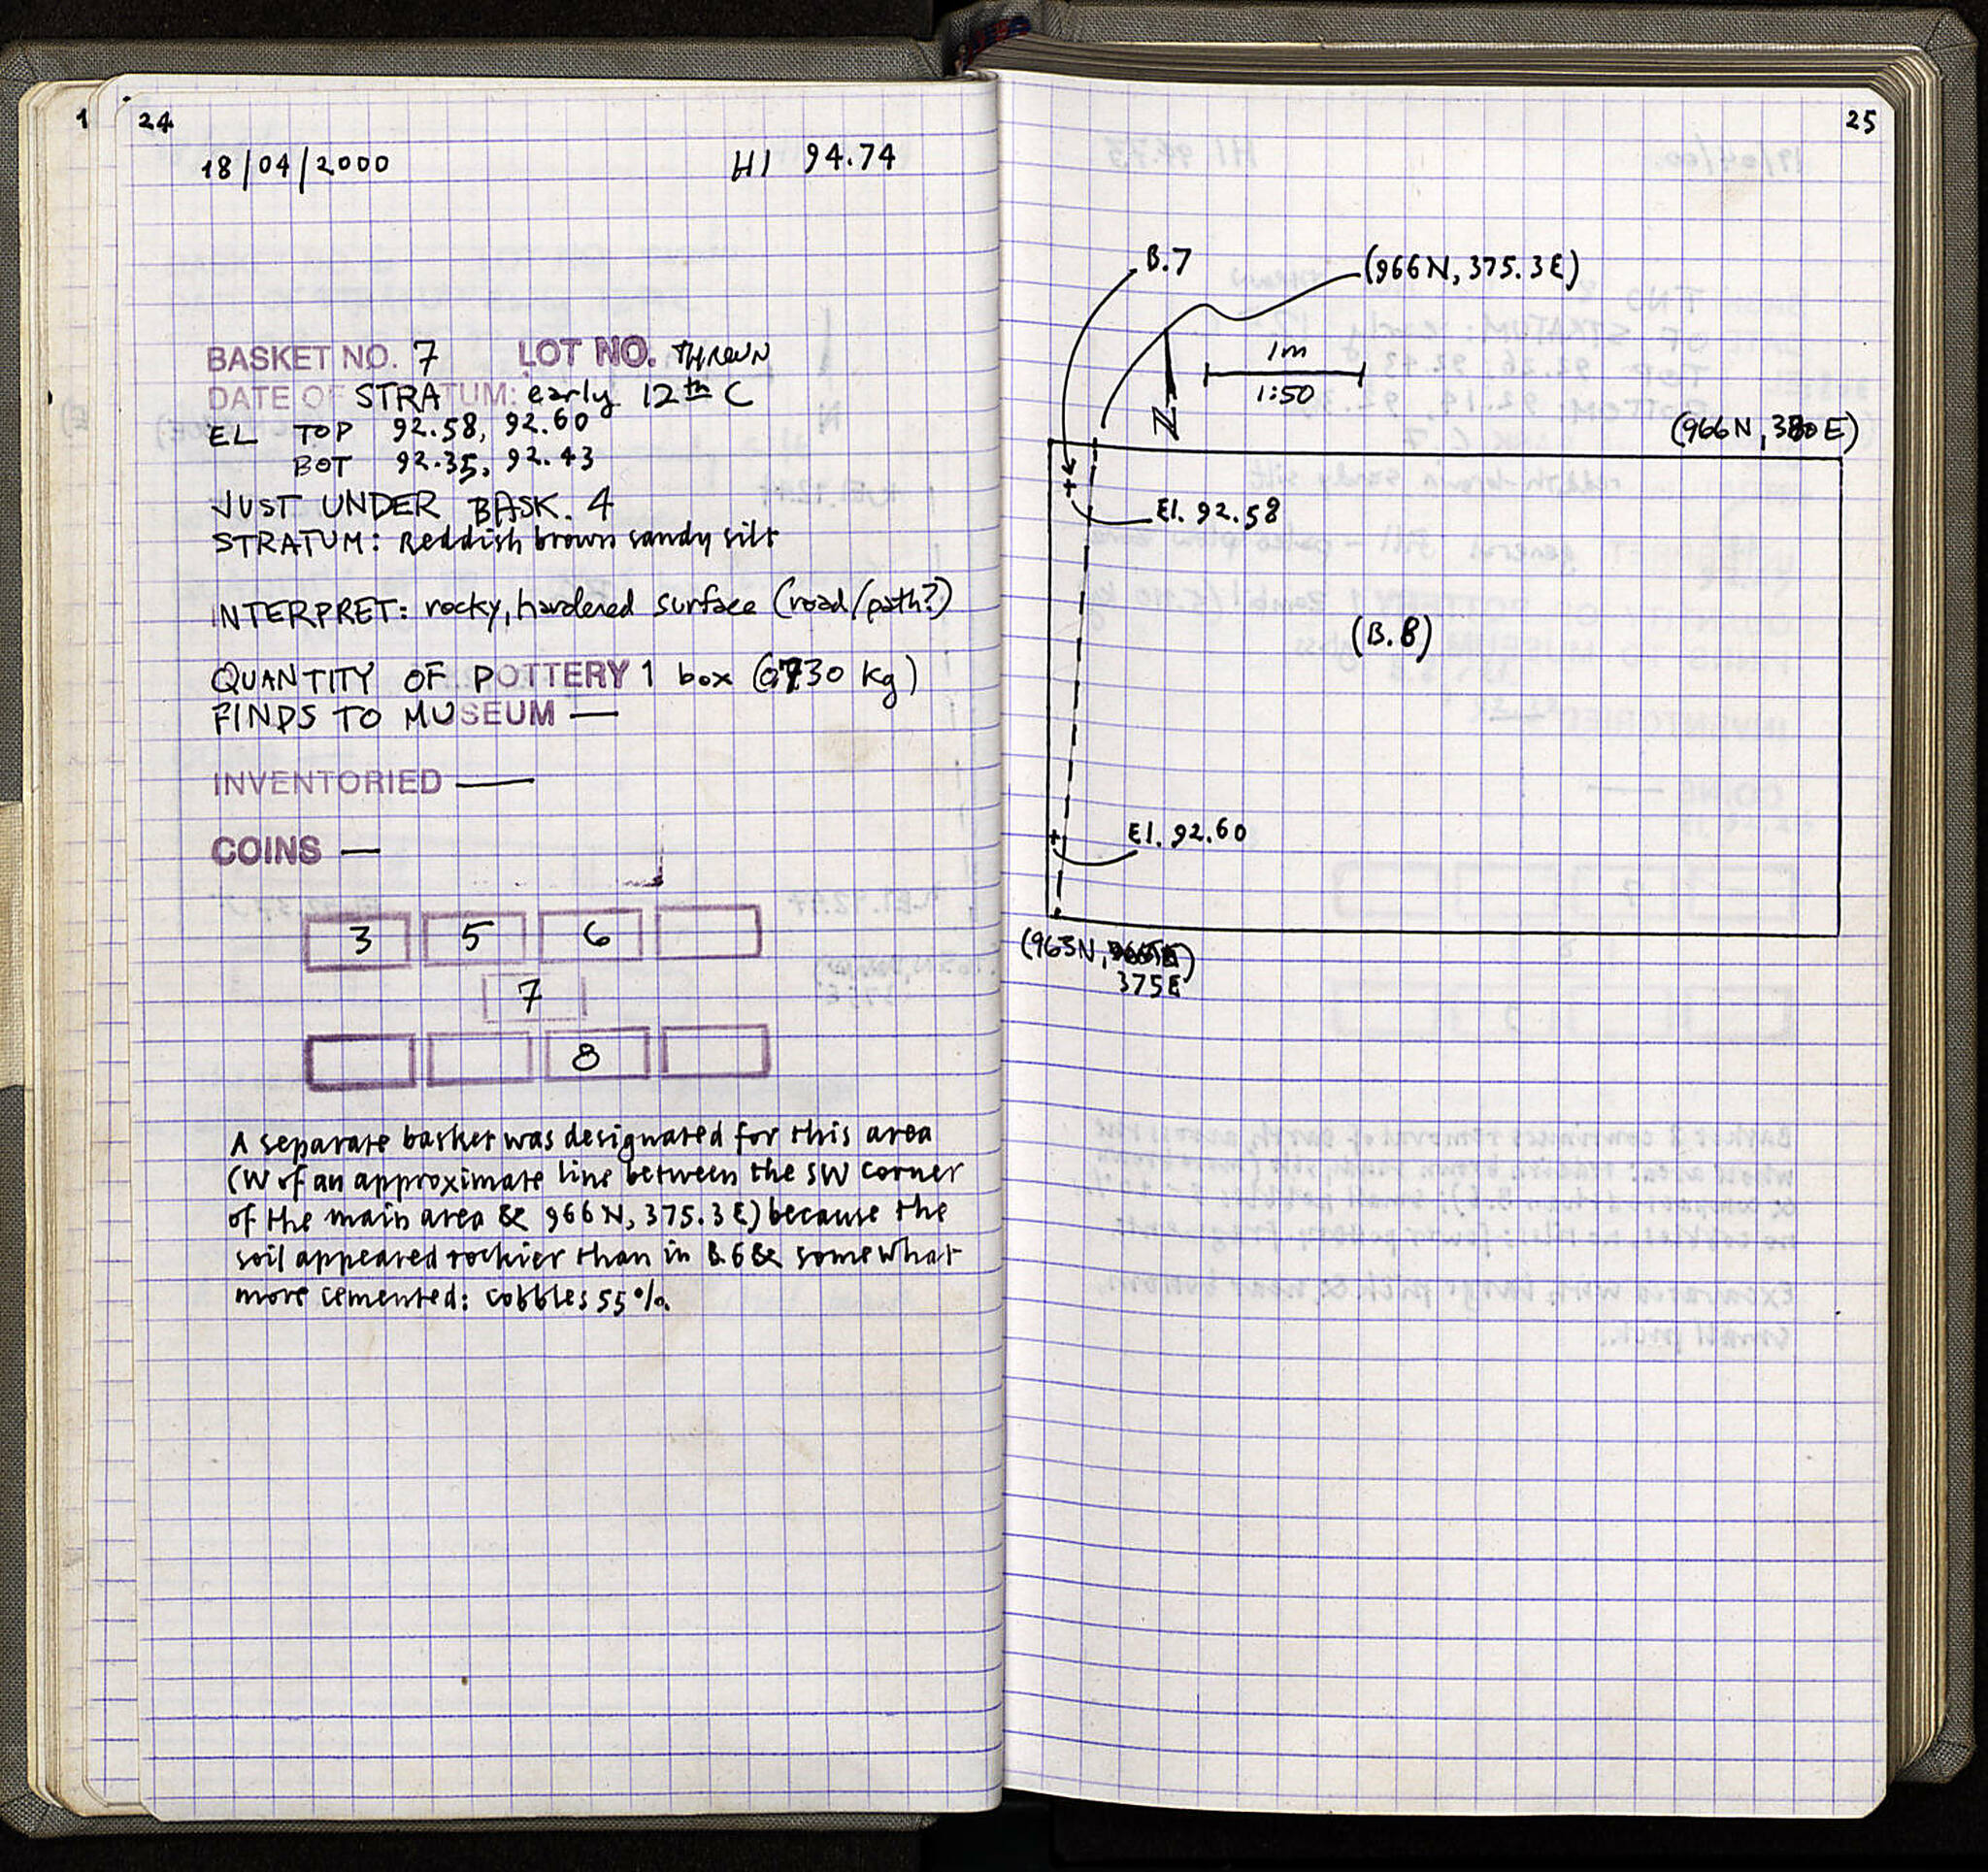 1
24
18/04/2000
HI 94.74
BASKET NO. 7 LOT NO. THROWN
DATE OF STRATUM: early 12th C
EL TOP 92.58, 92.60
BOT 92.35, 92.43
JUST UNDER BASK. 4
STRATUM: Reddish brown sandy silt
INTERPRET: rocky, hardened surface (road/path?)
QUANTITY OF POTTERY 1 box (0.730 kg)
FINDS TO MUSEUM —
INVENTORIED —
COINS —
3 5 6
7
8
A separate basket was designated for this area
(W of an approximate line between the SW corner
of the main area & 966 N, 375.3 E) because the
soil appeared rockier than in B.6 & somewhat
more cemented: cobbles 55%.
25
B.7
(966N, 375.3E)
1m
1:50
N
(966N, 380E)
El. 92.58
(B.8)
El. 92.60
(963N,
375E)